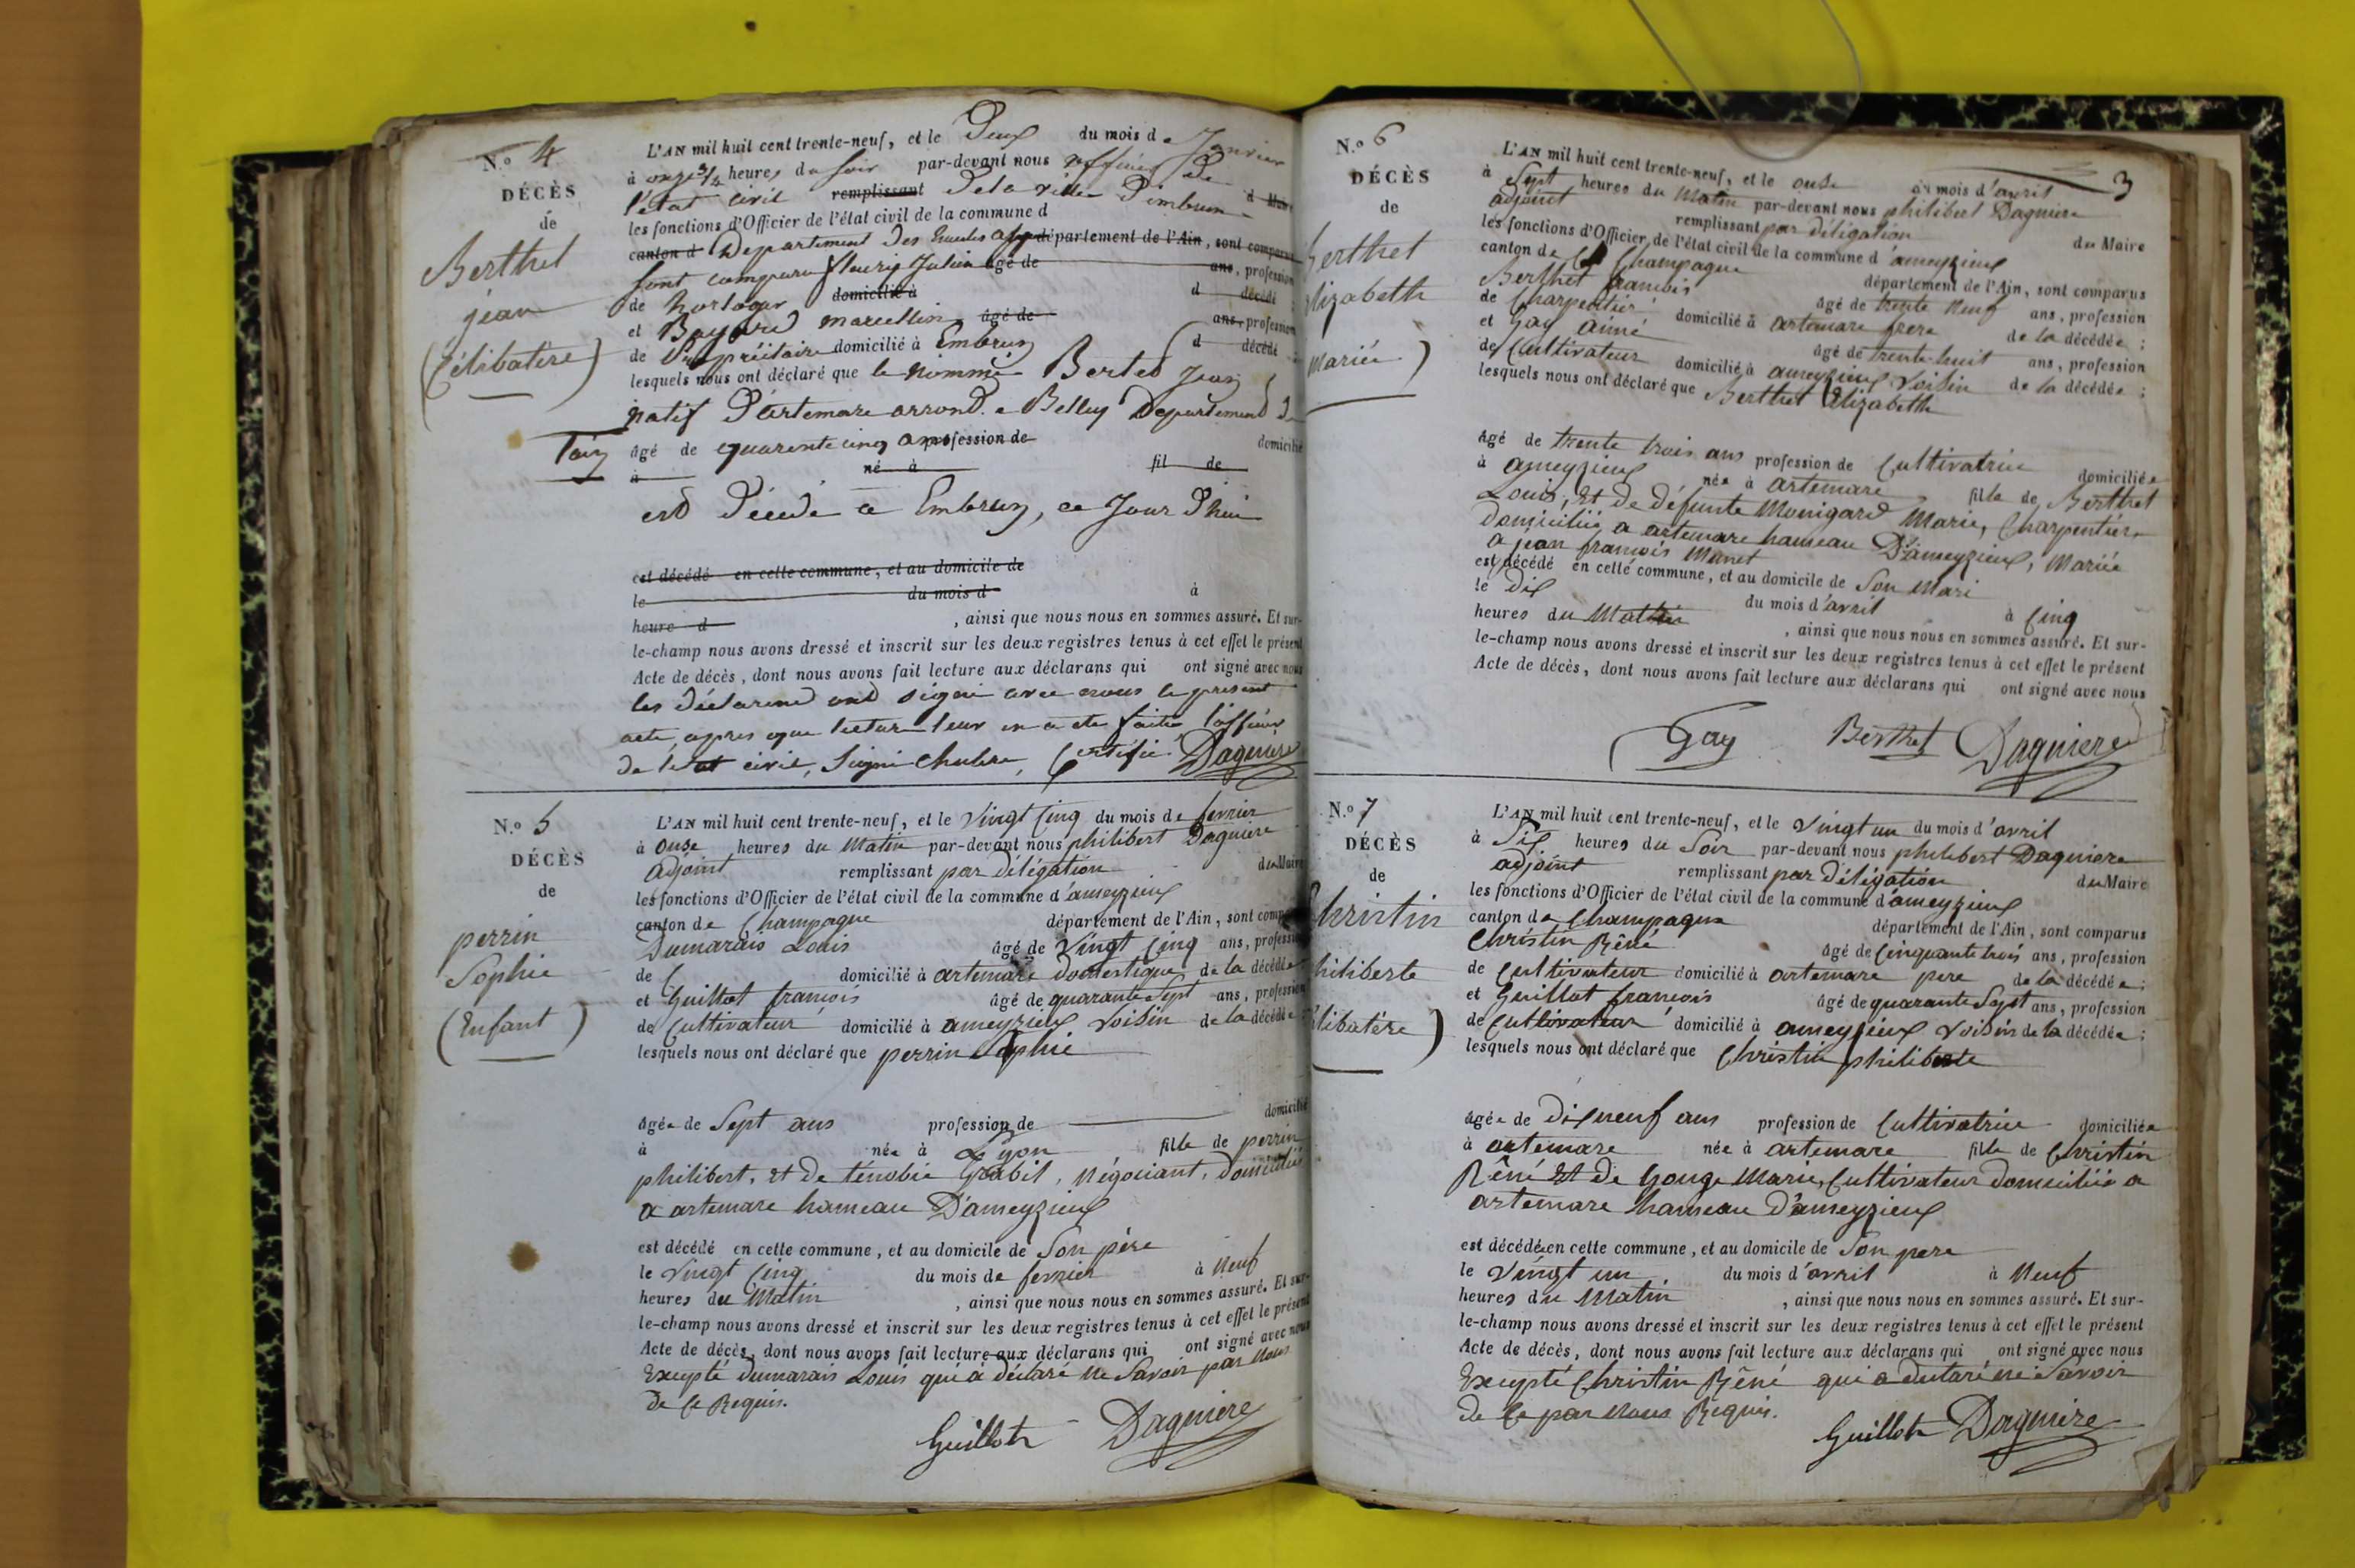 N.º 4
DÉCÈS
de
Berthet
jean
(Célibatère)
L'AN mil huit cent trente-neuf, et le Deux du mois de Janvier
à onze 3/4 heures du soir par-devant nous officier De
l'état civil remplissant De la ville D'embrun d Maire
les fonctions d'Officier de l'état civil de la commune d
canton d Departement Des hautes alpes département de l'Ain, sont comparus
sont comparu fleurig Julien âgé de ans, profession
de horloger domicilié à d décédé ;
et Bayard marcellin âgé de ans, profession
de Propriétaire domicilié à Embrun d décédé ;
lesquels nous ont déclaré que le nommé Berted Jean
natif D'artemare arrond. e Belley Departement De
l'ain âgé de quarente cinq ans profession de domicilié
à né à fil de
est Décédé a Embrun, ce Jour D'hui
est décédé en cette commune, et au domicile de
le du mois d à
heure d , ainsi que nous nous en sommes assuré. Et sur-
le-champ nous avons dressé et inscrit sur les deux registres tenus à cet effet le présent
Acte de décès, dont nous avons fait lecture aux déclarans qui ont signé avec nous
les déclarend ont signé avec nous le present
acte, apres que lecture leur en a ete faite l'officier
de letat civil, Signé Certifié Dagniere
N.º 5
DÉCÈS
de
perrin
Sophie
(Enfant)
L'AN mil huit cent trente-neuf, et le Vingt Cinq du mois de fevrier
à onze heures du Matin par-devant nous philibert Dagniere
adjoint remplissant par délégation du Maire
les fonctions d'Officier de l'état civil de la commune d'ameyzieux
canton de Champagne département de l'Ain, sont comparus
Dumarais Louis âgé de Vingt Cinq ans, profession
de domicilié à artemare domestique de la décédée
et Guillot francois âgé de quarante Sept ans, profession
de Cultivateur domicilié à ameyzieux Voisin de la décédée ;
lesquels nous ont déclaré que perrin Sophie
âgée de Sept ans profession de domicilié
à née à Lyon fille de perrin
philibert, et De ténobie Grabit, Négociant, domicilié
a artemare hameau D'ameyzieux
est décédé en cette commune, et au domicile de Son père
le Vingt Cinq du mois de fevrier à Neuf
heures du Matin , ainsi que nous nous en sommes assuré. Et sur-
le-champ nous avons dressé et inscrit sur les deux registres tenus à cet effet le présent
Acte de décès, dont nous avons fait lecture aux déclarans qui ont signé avec nous
Excepté dumarais Louis qui a déclaré ne Savoir par Nous
De ce Requis.
Guillot Dagniere
3
N.º 6
DÉCÈS
de
Berthet
Elizabeth
Mariée)
L'AN mil huit cent trente-neuf, et le onze du mois d'avril
à Sept heures du Matin par-devant nous philibert Dagniere
adjoint remplissant par délégation du Maire
les fonctions d'Officier de l'état civil de la commune d'ameyzieux
canton de Champagne département de l'Ain, sont comparus
Berthet francois âgé de trente Neuf ans, profession
de Charpentier domicilié à artemare frere de la décédée ;
et Gay aimé âgé de trente-huit ans, profession
de Cultivateur domicilié à ameyzieux Voisin de la décédée ;
lesquels nous ont déclaré que Berthet Elizabeth
âgé de trente trois ans profession de Cultivatrice domiciliée
à ameyzieux née à artemare fille de Berthet
Louis, Et De Défunte Monigard Marie, Charpentier,
Domicilié a artemare hameau D'ameyzieux, Mariée
a jean francois Munet
est décédé en cette commune, et au domicile de Son Mari
le Dix du mois d'avril à Cinq
heures du Matin , ainsi que nous nous en sommes assuré. Et sur-
le-champ nous avons dressé et inscrit sur les deux registres tenus à cet effet le présent
Acte de décès, dont nous avons fait lecture aux déclarans qui ont signé avec nous
Gay Berthet Dagniere
N.º 7
DÉCÈS
de
Christin
philiberte
Célibatère)
L'AN mil huit cent trente-neuf, et le Vingt un du mois d'avril
à Six heures du Soir par-devant nous philibert Dagniere
adjoint remplissant par délégation du Maire
les fonctions d'Officier de l'état civil de la commune d'ameyzieux
canton de Champagne département de l'Ain, sont comparus
Christin Réné âgé de Cinquante trois ans, profession
de Cultivateur domicilié à artemare pere de la décédée ;
et Guillot francois âgé de quarante Sept ans, profession
de Cultivateur domicilié à ameyzieux Voisin de la décédée ;
lesquels nous ont déclaré que Christin philiberte
âgée de Dix neuf ans profession de Cultivatrice domiciliée
à artemare née à artemare fille de Christin
Réné Et De Gouge Marie, Cultivateur domicilié a
artemare hameau D'ameyzieux
est décédée en cette commune, et au domicile de Son pere
le Vingt un du mois d'avril à Neuf
heures du Matin , ainsi que nous nous en sommes assuré. Et sur-
le-champ nous avons dressé et inscrit sur les deux registres tenus à cet effet le présent
Acte de décès, dont nous avons fait lecture aux déclarans qui ont signé avec nous
Excepté Christin Réné qui a déclaré ne Savoir
De ce par Nous Requis.
Guillot Dagniere